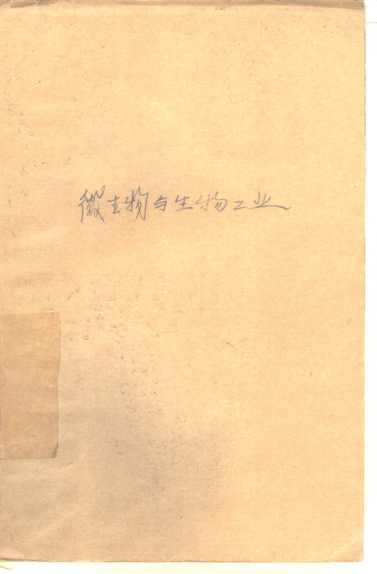 微生物与生物工业